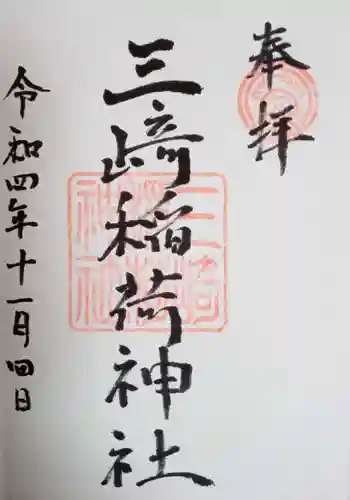 奉拝
三崎稲荷神社
令和四年十一月四日